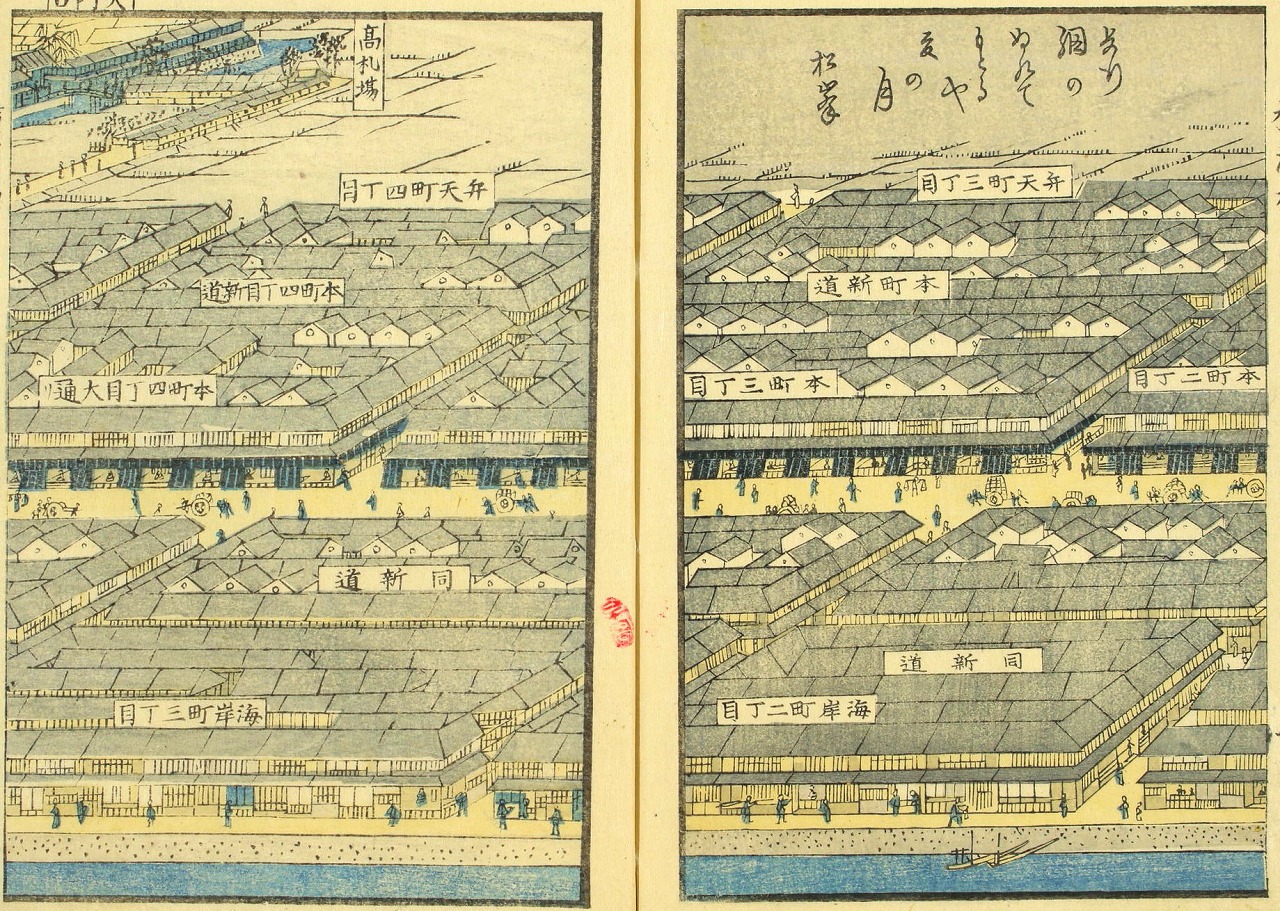 網の
ぬれて
もとる
や
夏の
月
松峯
弁天町三丁目
本町新道
本町二丁目
本町三丁目
同新道
海岸町二丁目
高札場
弁天町四丁目
本町四丁目新道
本町四丁目大通り
同新道
海岸町三丁目